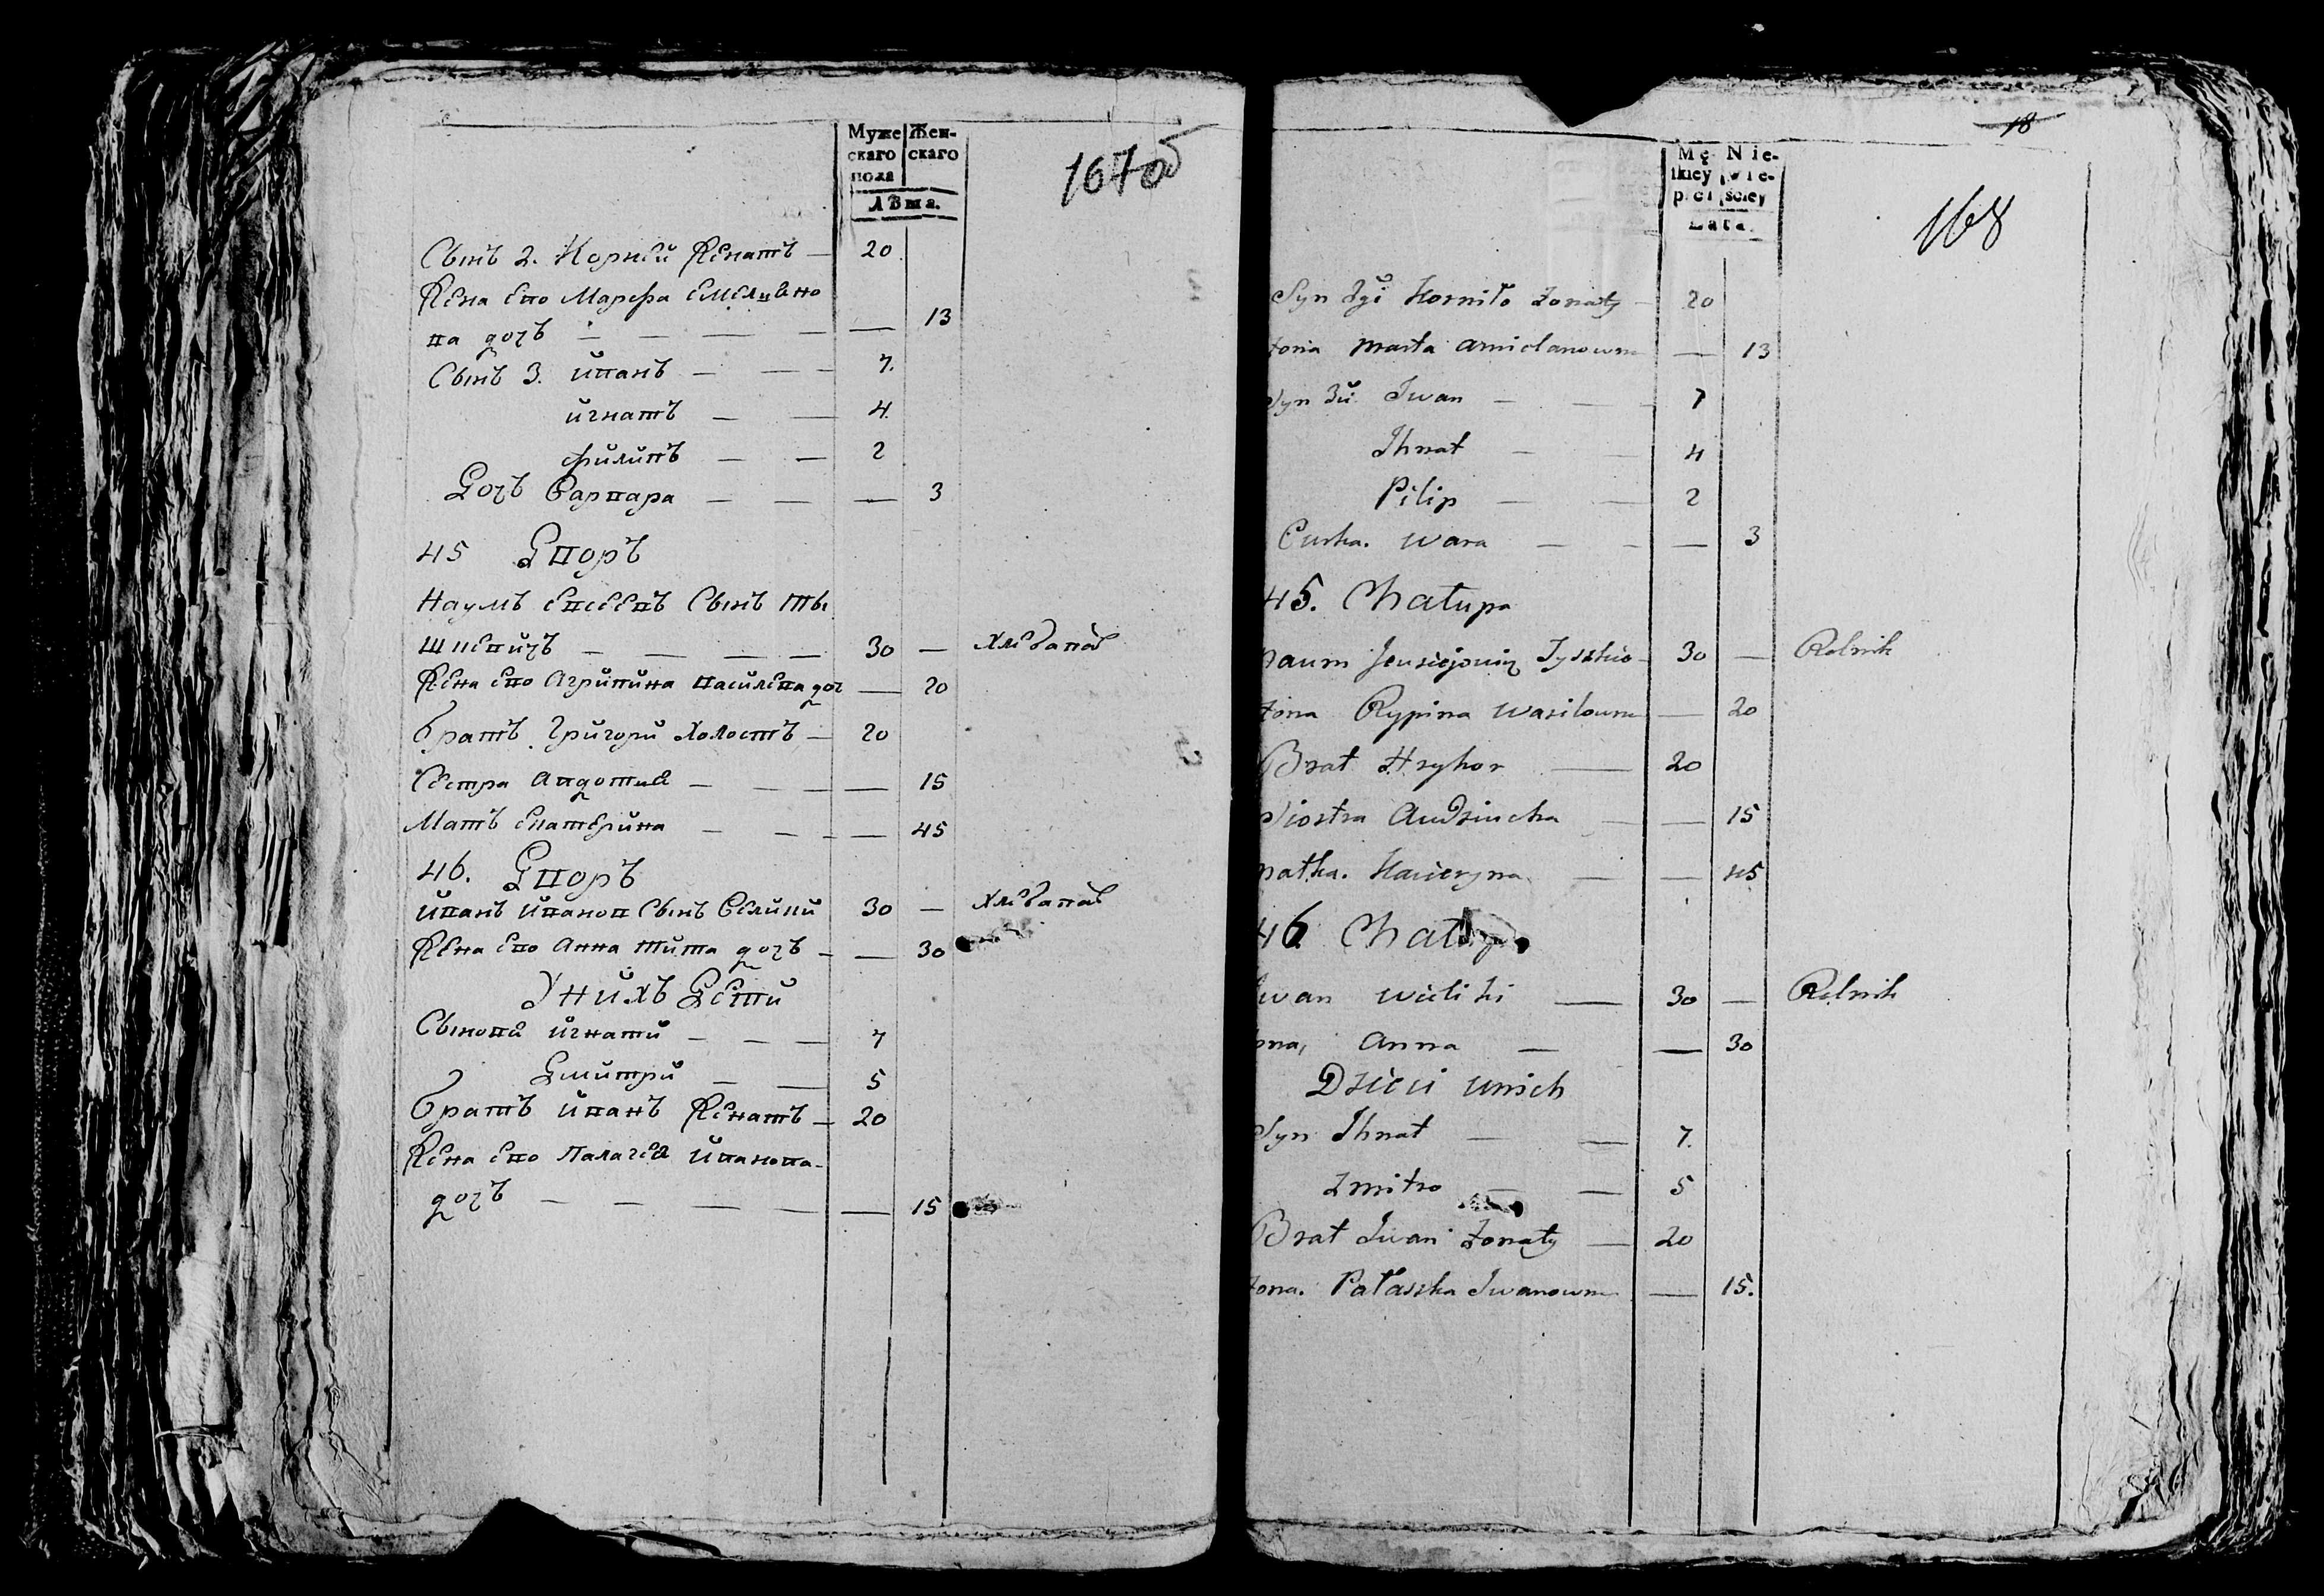 Муже Жен-
скаго скаго
пола
лѣта.
167об
Сынъ 2. Корней женатъ — 20
Жена ево Марфа емелияно
ва дочъ — — — — — 13
Сынъ 3. иванъ — — — 7.
игнатъ — — 4
филипъ — — 2
Дочъ варвара — — — 3
45 Дворъ
Наумъ евсеевъ Сынъ ты
шкевичъ — — — — 30 — хлебапаш
Жена ево Агрипина василева доч — 20
братъ григори холостъ — 20
Сестра авдотия — — — — 15
Мать екатерина — — — — 45
46. Дворъ
иванъ иванов Сынъ велики 30 — хлебапаш
Жена ево анна тита дочъ — — 30
У нихъ Дети
Сыновя игнати — — — 7
Дмитри — — 5
братъ иванъ женатъ — 20
Жена ево палагея иванова-
дочъ — — — — — 15
18
Mę- Nie-
skiey wie-
płci sciey
Lata.
168
Syn 2gi Korniło Zonaty — 20
Zona Marta amielanowna — 13
Syn 3ii Iwan — — — 7
Ihnat — — 4
Pilip — — 2
Curka. Wara — — — 3
45. Chałupa
Naum Jeusiejowicz Tyszkie- 30 — Rolnik
Zona Rypina Wasilowna — 20
Brat Hryhor — 20
Siostra Audziucha — — 15
Matka. Kacieryna — — 45
46 Chałupa
Iwan Wieliki — 30 — Rolnik
Zona, Anna — — 30
Dzieci unich
Syn Ihnat — — 7.
Zmitro — — 5
Brat Iwan Zonaty — 20
Zona. Pałaszka Iwanowna — 15.